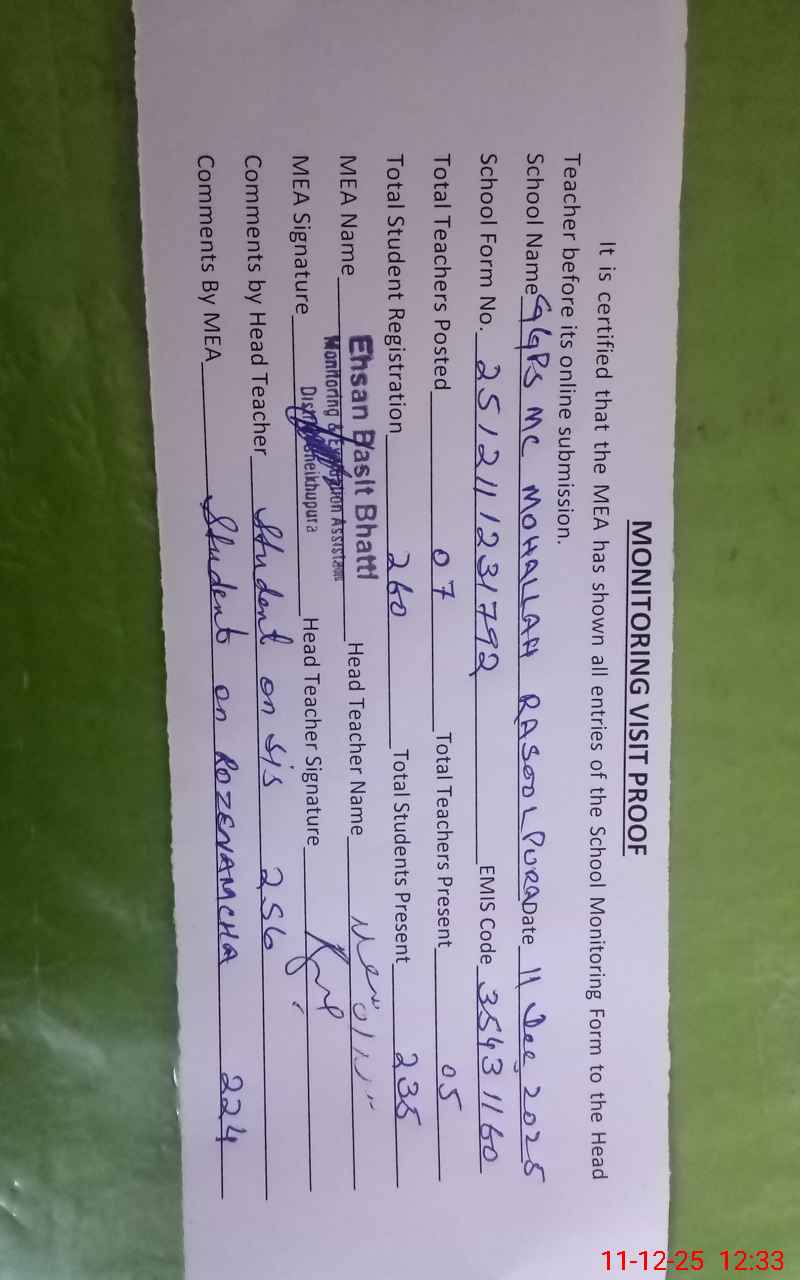 MONITORING VISIT PROOF
It is certified that the MEA has shown all entries of the School Monitoring Form to the Head
Teacher before its online submission.
School Name GGPS MC MOHALLAH RASOOL PURA Date 11 Dec 2025
School Form No. 2512111231792 EMIS Code 35431160
Total Teachers Posted 07 Total Teachers Present 05
Total Student Registration 260 Total Students Present 235
MEA Name Ehsan Basit Bhatti Head Teacher Name
Monitoring & Evaluation Assistant
MEA Signature Head Teacher Signature
Sheikhupura
Comments by Head Teacher Student on sis 256
Comments By MEA Student on ROZENAMCHA 224
11-12-25 12:33